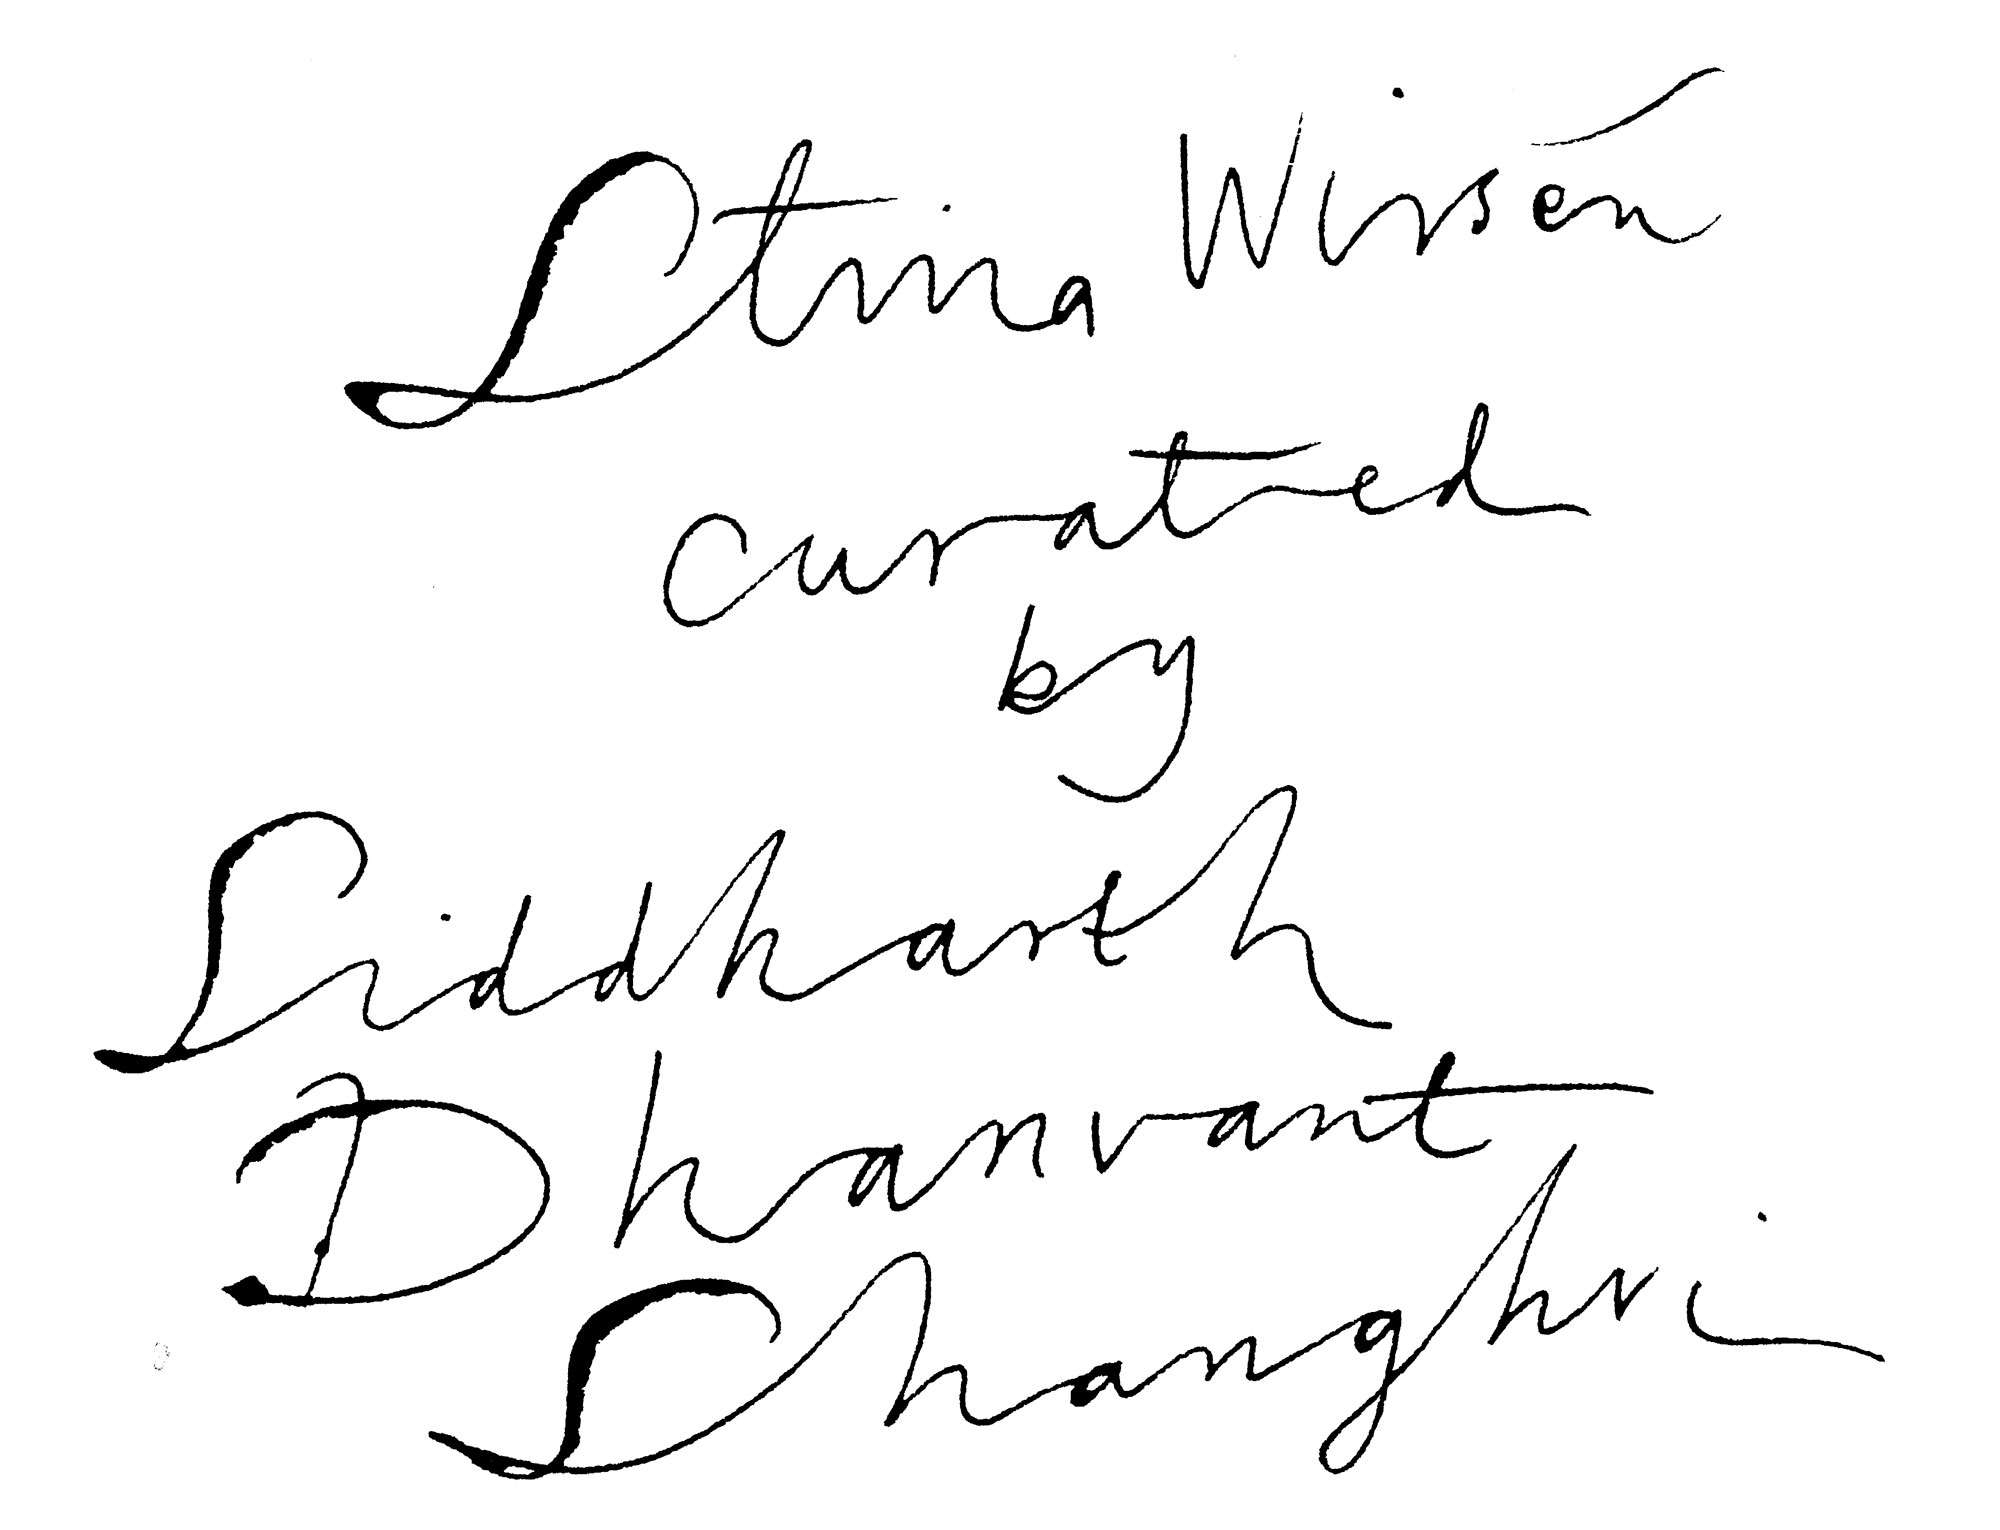 Stina Wirsén
curated
by
Siddharth
Dhanvant
Shanghvi